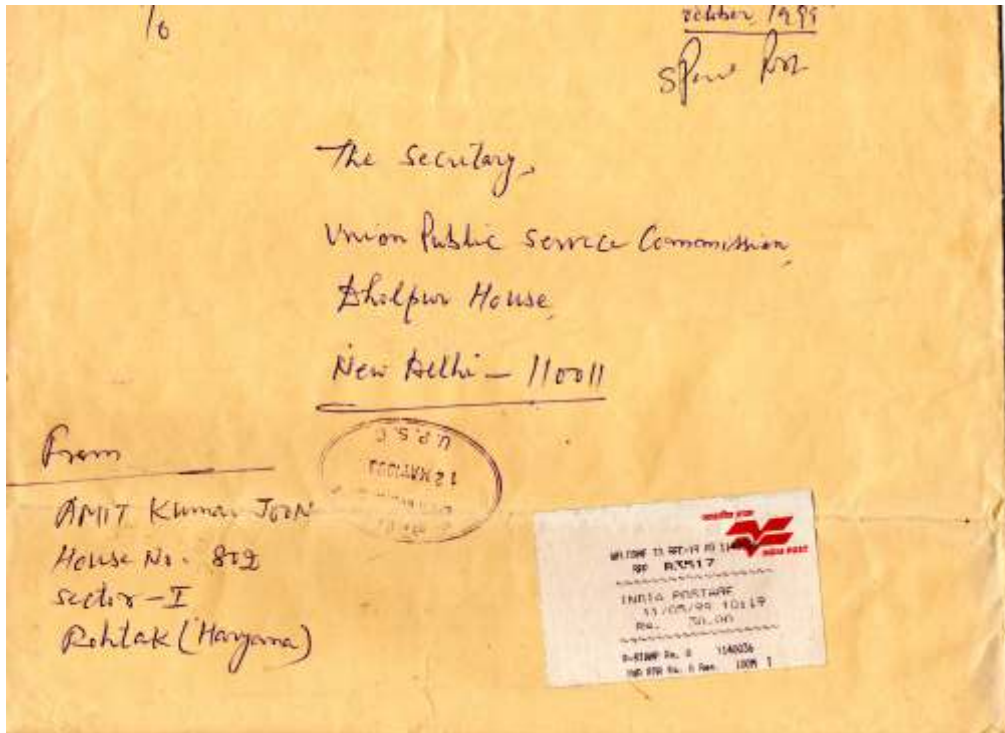 To
October, 1999
Speed Post
The Secretary,
Union Public Service Commission,
Dholpur House,
New Delhi - 110011
From
AMIT Kumar JOON
House No. 802
Sector-I
Rohtak (Haryana)
U.P.S.C
12 MAY 1999
INDIA POST
RPP A3517
INDIA POSTAGE
11/05/99 10:19
Rs. 30.00